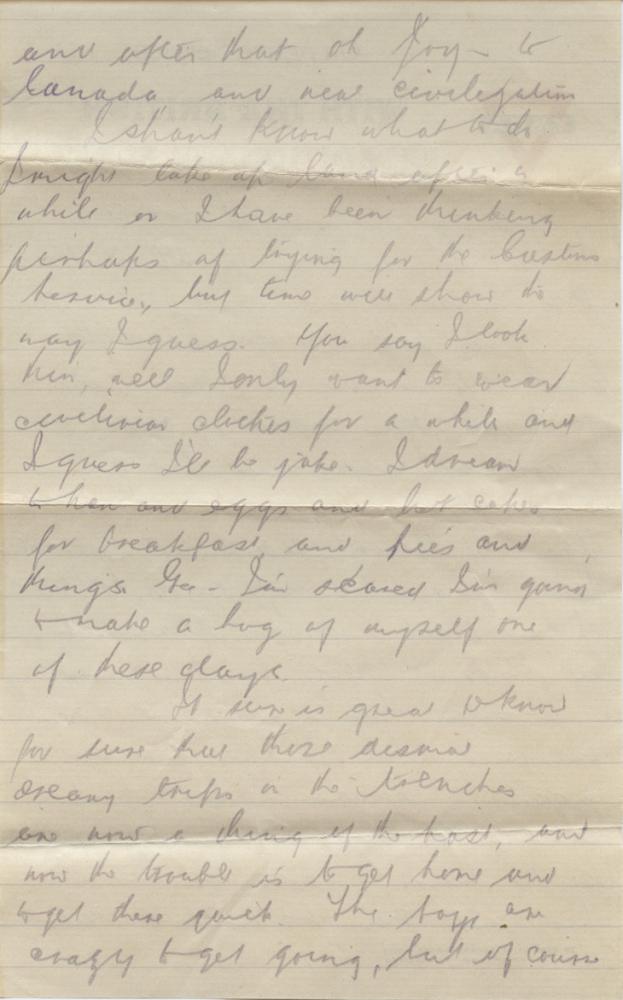 and after that oh Joy - to
Canada, and real civilization
I shan't know what to do.
I might take up land after a
while or I have been thinking
perhaps of trying for the Customs
Service, but time will show the
way I guess. You say I look
thin, well I only want to wear
civilian clothes for a while and
I guess I'll be jake. I dream
of ham and eggs and hot cakes
for breakfast, and pies and
things. Gee - I'm scared I'm going
to make a hog of myself one
of these days.
It sure is great to know
for sure that those dismal
dreary trips in the trenches
are now a thing of the past, and
now the trouble is to get home and
to get there quick. The boys are
crazy to get going, but of course